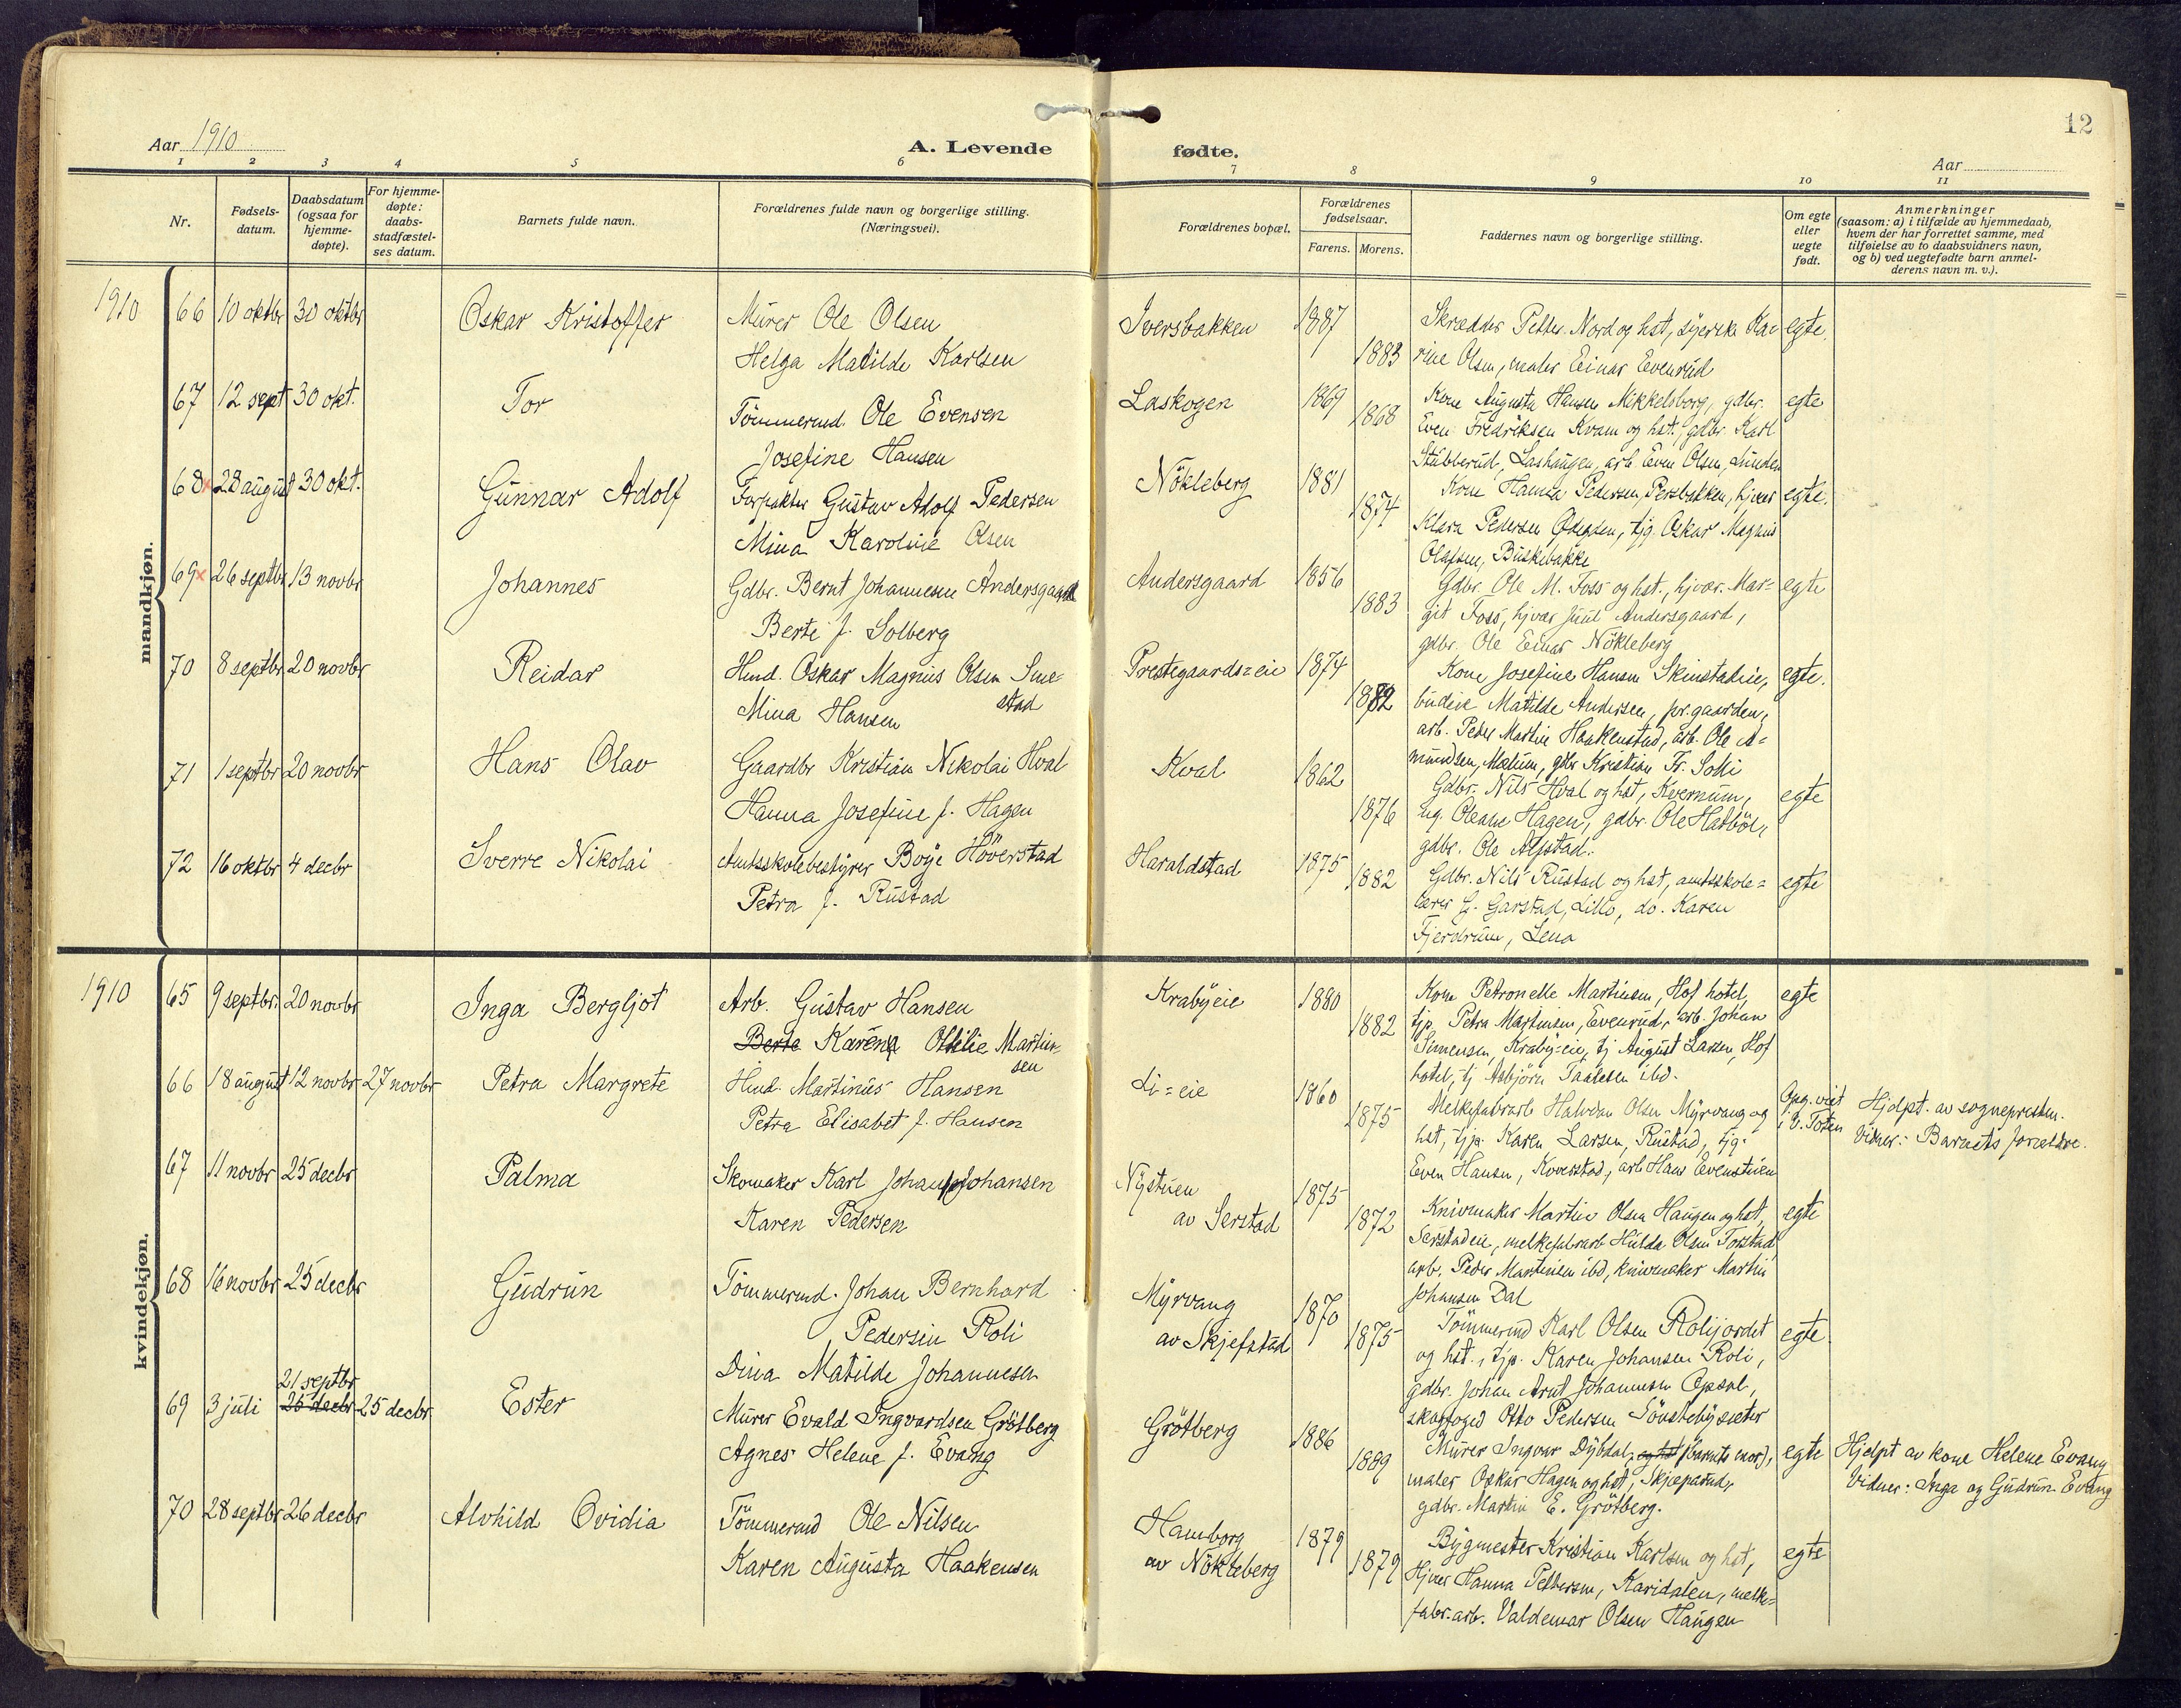 12
Aar 1910
A. Levende
fødte.
Aar
1 2 3 4 5 6 7 8 9 10 11
Nr.
Fødsels-
datum.
Daabsdatum
(ogsaa for
hjemme-
døpte).
For hjemme-
døpte:
daabs-
stadfæstel-
ses datum.
Barnets fulde navn.
Forældrenes fulde navn og borgerlige stilling.
(Næringsvei).
Forældrenes bopæl.
Forældrenes
fødselsaar.
Farens. Morens.
Faddernes navn og borgerlige stilling.
Om egte
eller
uegte
født.
Anmerkninger
(saasom: a) i tilfælde av hjemmedaab,
hvem der har forrettet samme, med
tilføielse av to daabsvidners navn,
og b) ved uegtefødte barn anmel-
derens navn m. v.).
mandkjøn.
1910 66 10 oktbr 30 oktbr Oskar Kristoffer
Murer Ole Olsen
Helga Matilde Karlsen
Iversbakken 1887 1883
Skrædder Petter Nord og hst, syerske Ka-
rine Olsen, maler Einar Evenrud
egte.
67 12 sept 30 okt. Tor
Tømmermd. Ole Evensen
Josefine Hansen
Laskogen 1869 1868
Kone Augusta Hansen Mikkelsborg, gdbr.
Even Fredriksen Kvam og hst., gdbr. Karl
Stubberud, Lashaugen, arb. Even Olsen, Lunden
egte
68 28 august 30 okt. Gunnar Adolf
Forpakter Gustav Adolf Pedersen
Mina Karoline Olsen
Nökleberg 1881 1874
Kone Hanna Pedersen, Persbakken, hjvær
Klara Pedersen Ødegaden, tjg. Oskar Magnus
Olafsen, Buskebakke
egte.
69 26 septbr 13 novbr Johannes
Gdbr. Bernt Johannesen Andersgaard
Berte f. Solberg
Andersgaard 1856 1883
Gdbr. Ole M. Foss og hst., hjvær. Mar=
git Foss, hjvær Juul Andersgaard,
gdbr. Ole Einar Nökleberg
egte
70 8 septbr 20 novbr Reidar
Hmd. Oskar Magnus Olsen Sme-
stad
Mina Hansen
Prestegaards=eie 1874 1882
Kone Josefine Hansen Skinstadeie,
budeie Matilde Andersen, pr.gaarden,
arb. Peder Martin Haakenstad, arb. Ole A=
mundsen, Mælum, gdbr Kristian Fr. Solli
egte.
71 1 septbr 20 novbr Hans Olav
Gaardbr Kristian Nikolai Hval
Hanna Josefine f. Hagen
Kval 1862 1876
Gdbr. Nils Hval og hst, Kvernum,
ug. Oleane Hagen, gdbr. Ole Hatböl,
gdbr. Ole Alfstad.
egte
72 16 oktbr 4 decbr Sverre Nikolai
Amtsskolebestyrer Boye Höverstad
Petra f. Rustad
Haraldstad 1875 1882
Gdbr. Nils Rustad og hst, amtsskole=
lærer G. Garstad, Lillo, do. Karen
Fjerdrum, Lena
egte
kvindekjøn.
1910 65 9 septbr. 20 novbr Inga Bergljot
Arb. Gustav Hansen
Berte Karena Otilie Martin-
sen
Krabyeie 1880 1882
Kone Petronelle Martinsen, Hof hotel,
tjp. Petra Martinsen, Evenrud, arb. Johan
Simensen, Kraby=eie, tj August Larsen, Hof
hotel, tj Asbjörn Paalesen ibd.
egte
66 18 august 12 novbr 27 novbr Petra Margrete
Hmd. Martinus Hansen
Petra Elisabet f. Hansen
Li=eie 1860 1875
Melkefabrarb Halvdan Olsen Myrvang og
hst, tjp. Karen Larsen, Rustad, tjg.
Even Hansen, Koverstad, arb Hans Evenstuen
Opg. viet
i V. Toten
Hjdpt. av sognepresten.
Vidner: Barnets forældre.
67 11 novbr 25 decbr Palma
Skomaker Karl Johan Johansen
Karen Pedersen
Nystuen
av Serstad
1875 1872
Knivmaker Martin Olsen Haugen og hst,
Serstadeie, melkefabrarb Hulda Olsen Torstad
arb. Peder Martinsen ibd, knivmaker Martin
Johansen Dal
egte
68 16 novbr 25 decbr Gudrun
Tömmermd. Johan Bernhard
Pedersen Roli
Dina Matilde Johannesen
Myrvang
av Skjefstad
1870 1875
Tömmermd Karl Olsen Rolijordet
og hst., tjp. Karen Johansen Roli,
gdbr. Johan Arnt Johannesen Opsal,
skogfoged Otto Pedersen Tönstebysæter
egte
69 3 juli 21 septbr 25 decbr 25 decbr Ester
Murer Evald Ingvardsen Grötberg
Agnes Helene f. Evang
Grötberg 1886 1889
Murer Ingvar Dybdal, og hst (barnets mor),
maler Oskar Hagen og hst, Skjeparud,
gdbr. Martin E. Grötberg.
egte
Hjdpt av kone Helene Evang
Vidner: Inga og Gudrun Evang
70 28 septbr 26 decbr Alvhild Ovidia
Tömmermd Ole Nilsen
Karen Augusta Haakensen
Hamborg
av Nökleberg
1879 1879
Bygmester Kristian Karlsen og hst,
Hjvær Hanna Pettersen, Karidalen, melke=
fabr.arb. Valdemar Olsen Haugen
egte